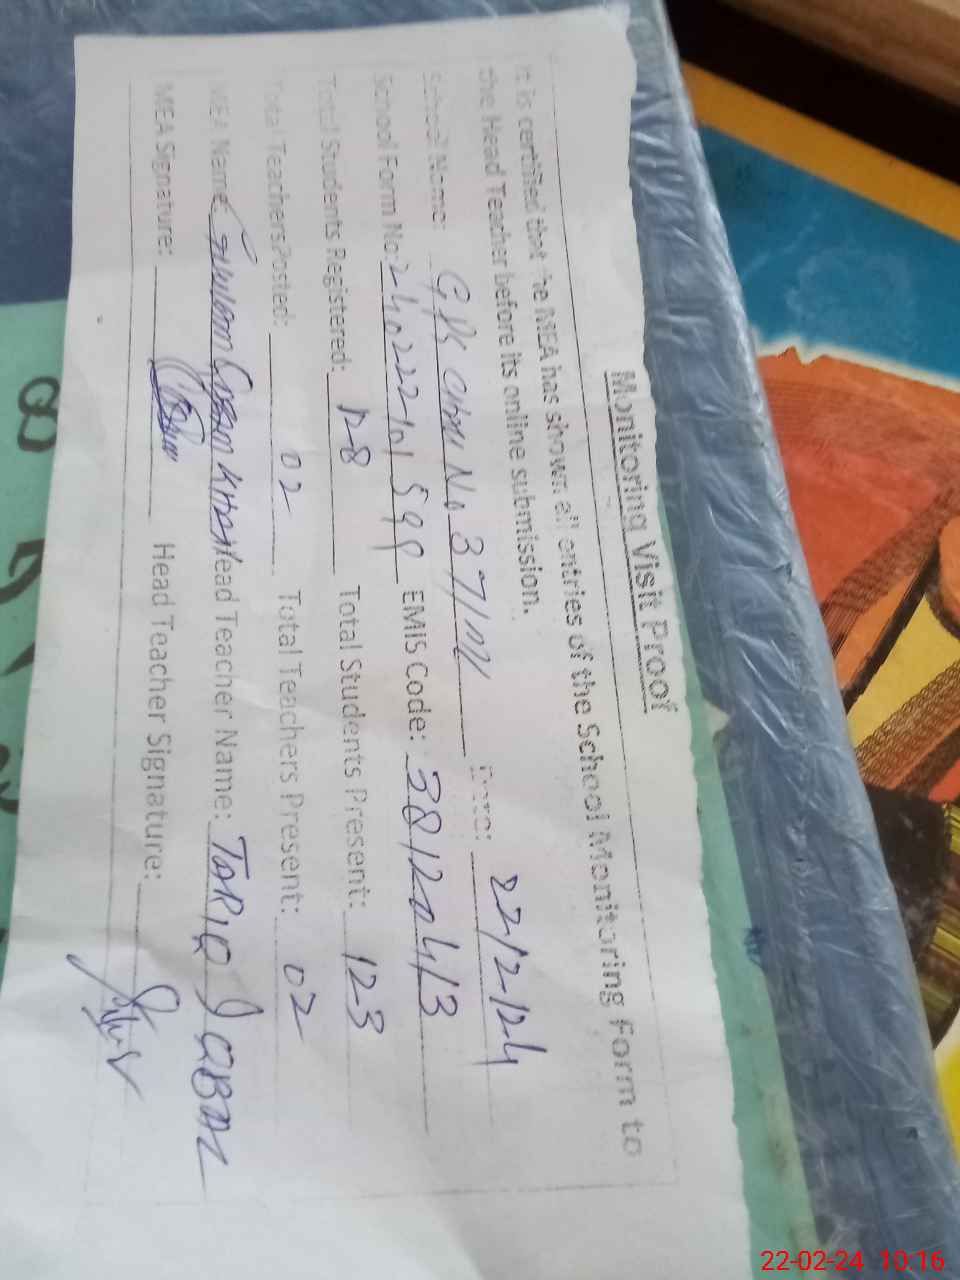 Monitoring Visit Proof
It is certified that the MEA has shown all entries of the School Monitoring Form to
the Head Teacher before its online submission.
School Name: GPS Chak No 37/ Date: 22/2/24
School Form No: 240222101599 EMIS Code: 38120413
Total Students Registered: 128 Total Students Present: 123
Total Teachers Posted: 02 Total Teachers Present: 02
MEA Name: Khan Head Teacher Name: TARIQ IQBAL
MEA Signature: Head Teacher Signature:
22-02-24 10:16